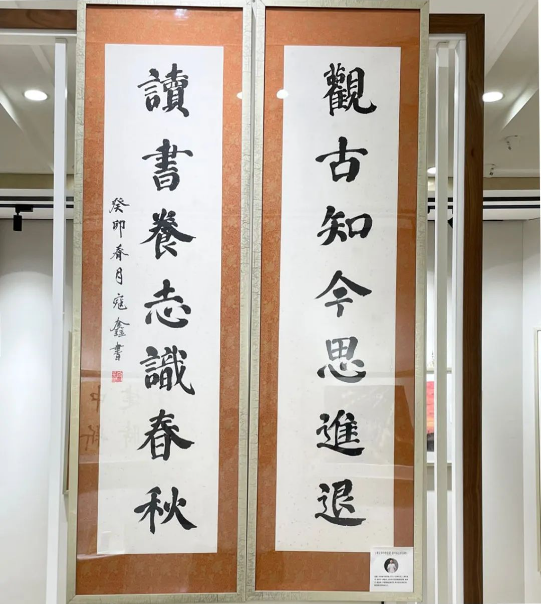 觀古知今思進退
讀書養志識春秋
癸卯春月寇鑫書